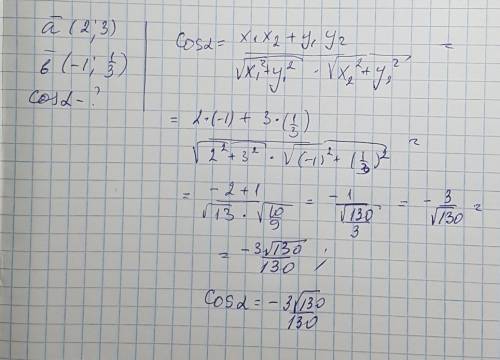 a̅ (2; 3)
b̅ (-1; 1/3)
cosα - ?
cosα = (x₁x₂ + y₁y₂) / (√(x₁² + y₁²) · √(x₂² + y₂²)) =
= (2·(-1) + 3·(1/3)) / (√(2² + 3²) · √((-1)² + (1/3)²)) =
= (-2 + 1) / (√13 · √(10/9)) = -1 / (√130 / 3) = -3/√130 =
= -3√130 / 130 ;
cosα = -3√130 / 130